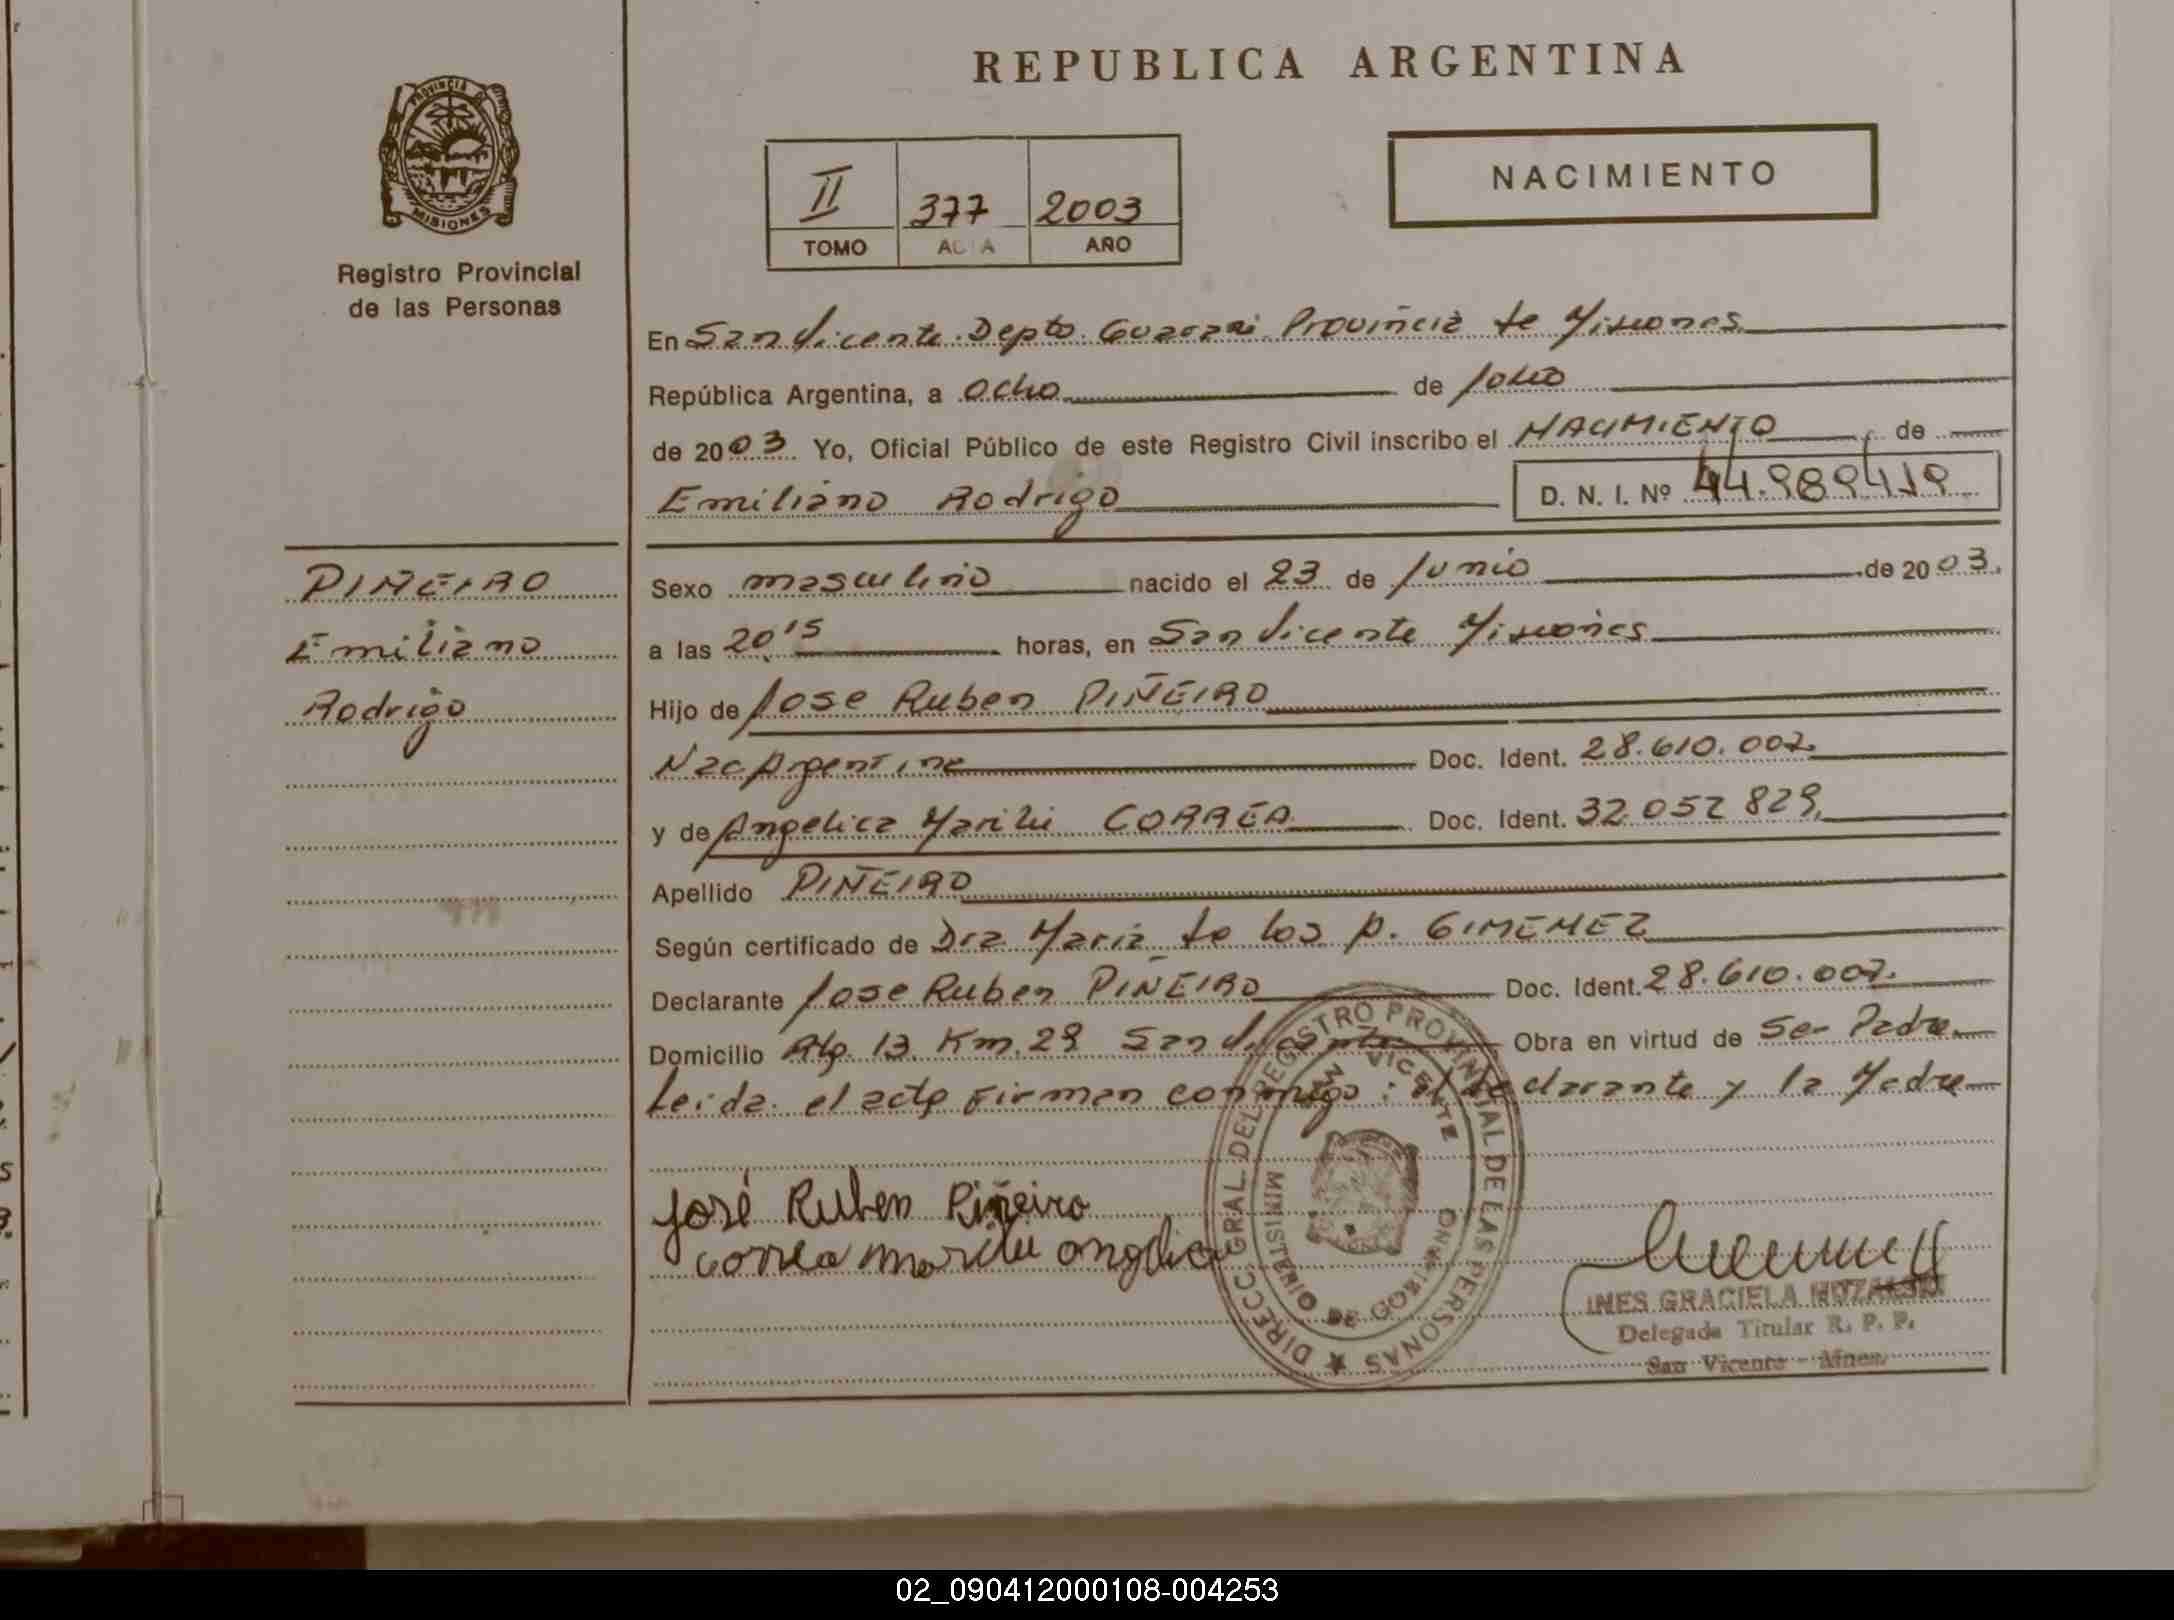 REPUBLICA ARGENTINA
PROVINCIA DE
MISIONES
Registro Provincial
de las Personas
II 377 2003
TOMO ACTA AÑO
NACIMIENTO
En San Vicente. Depto. Guarani. Provincia de Misiones
República Argentina, a ocho de Julio
de 2003. Yo, Oficial Público de este Registro Civil inscribo el NACIMIENTO de
Emiliano Rodrigo D. N. I. Nº 44.989419
PIÑEIRO
Emiliano
Rodrigo
Sexo masculino nacido el 23 de Junio de 2003.
a las 20'15 horas, en San Vicente Misiones
Hijo de Jose Ruben PIÑEIRO
Nac Argentina Doc. Ident. 28.610.007.
y de Angelica Marilu CORREA Doc. Ident. 32.052 829.
Apellido PIÑEIRO
Según certificado de Dra Maria de los A. GIMENEZ
Declarante Jose Ruben PIÑEIRO Doc. Ident. 28.610.007.
Domicilio Km. 29 San Vicente Obra en virtud de Ser Padre
Leida el acta Firman conmigo: el declarante y la Madre
José Ruben Piñeiro
Correa Marilu Angelica
DIRECC. GRAL. DEL REGISTRO PROVINCIAL DE LAS PERSONAS
VICENTE
MINISTERIO DE GOBIERNO
INES GRACIELA
Delegada Titular R. P. P.
San Vicente - Mnes.
02_090412000108-004253